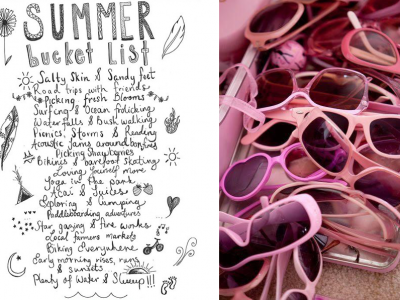 SUMMER
bucket list
Salty Skin & Sandy feet
Road trips with friends
Picking fresh Blooms
Surfing & Ocean frolicking
Waterfalls & Bush walking
Picnics, Storms & Reading
Acoustic Jams around bonfires
Picking
Bikinis & barefoot skating
Loving yourself more
Yoga in the park
Acai & Juices
Exploring & Camping
Paddleboarding adventures
Star gazing & fire works
Local farmers markets
Biking Everywhere
Early morning rises, runs
& sunsets
Plenty of Water & Sleep!!!